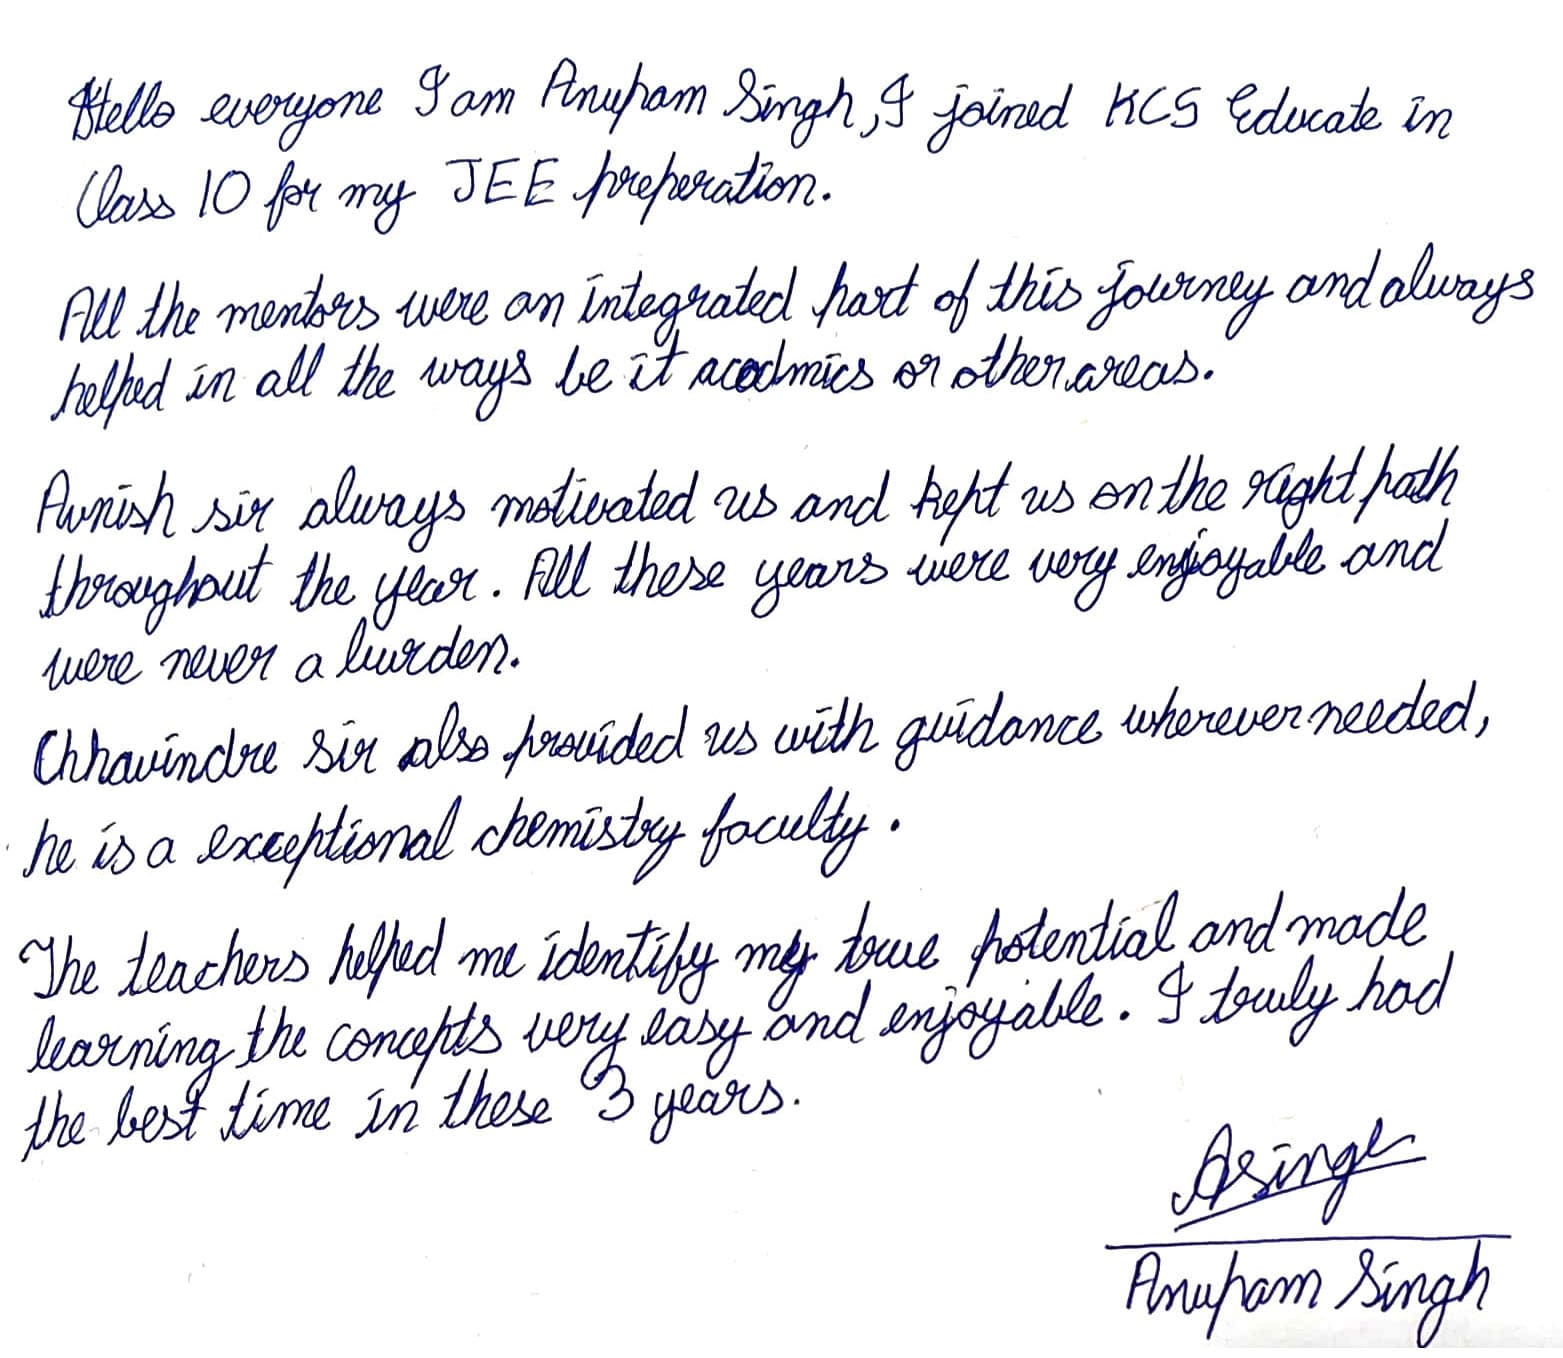 Hello everyone I am Anupam Singh, I joined KCS Educate in
Class 10 for my JEE preperation.
All the mentors were an integrated part of this journey and always
helped in all the ways be it acadmics or other areas.
Avnish sir always motivated us and kept us on the right path
throughout the year. All these years were very enjoyable and
were never a burden.
Chhavindre Sir also provided us with guidance wherever needed,
he is a exceptional chemistry faculty.
The teachers helped me identify my true potential and made
learning the concepts very easy and enjoyable. I truly had
the best time in these 3 years.
Asingh
Anupam Singh